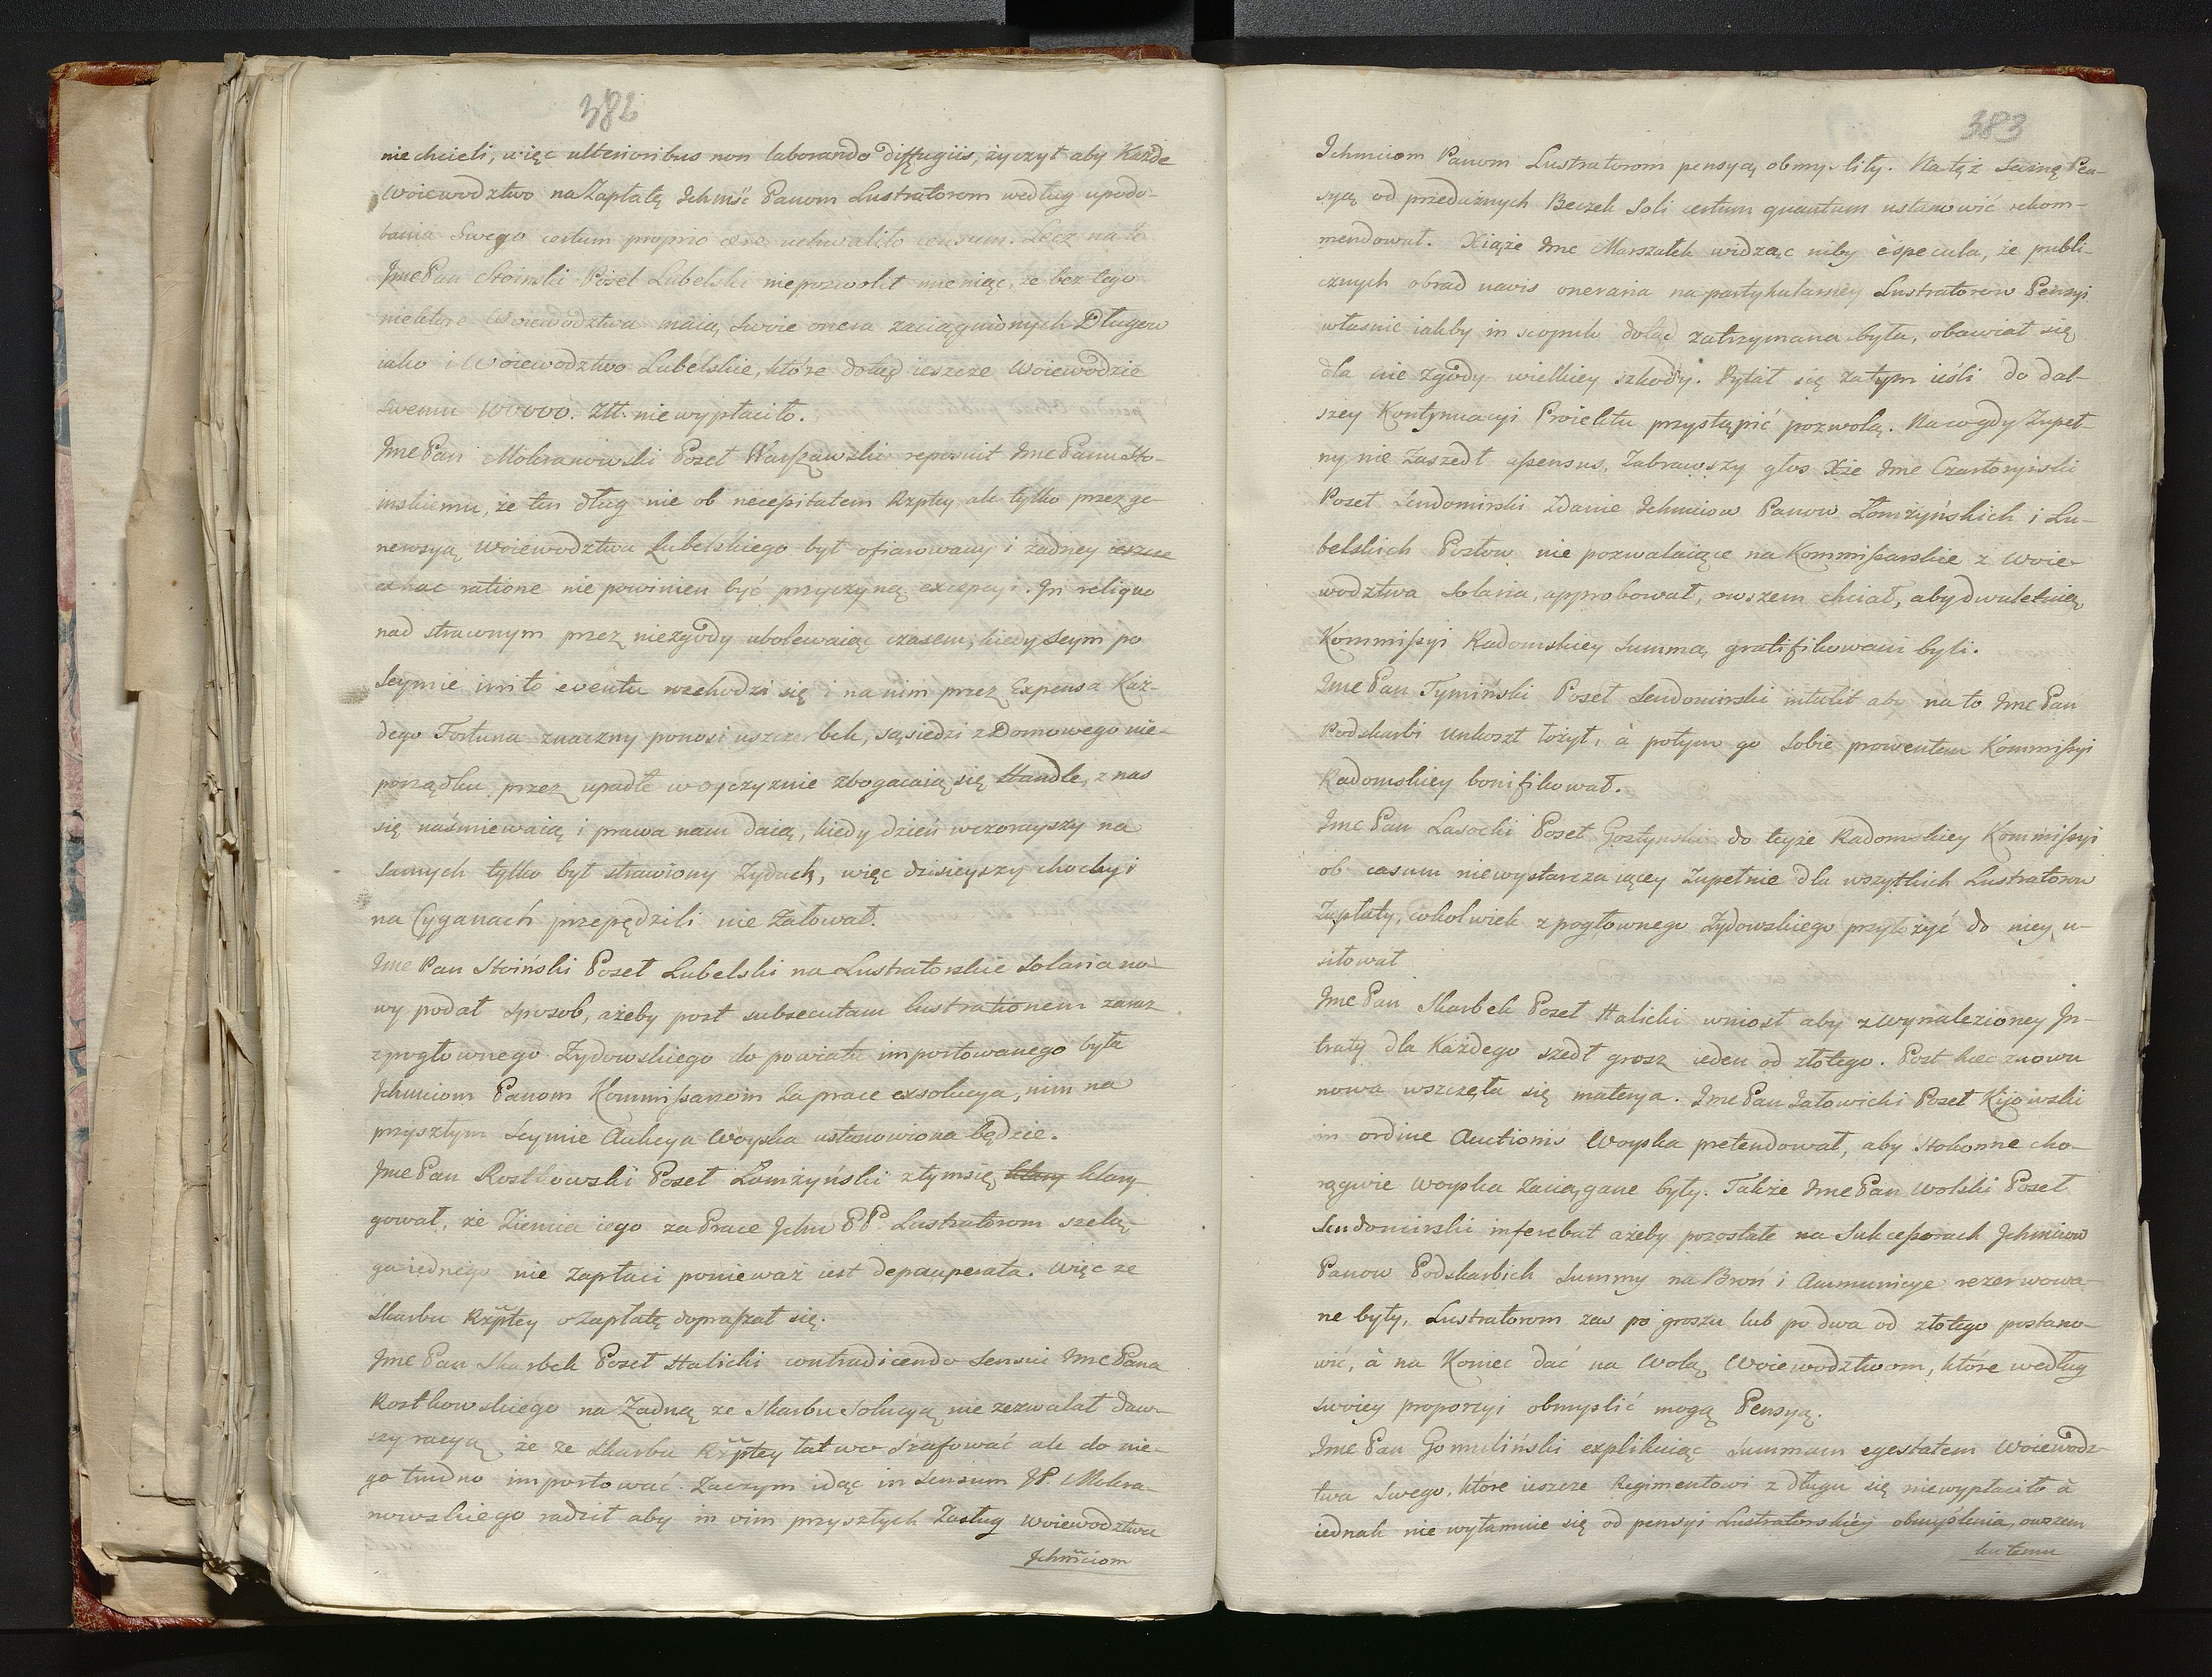 382
nie chcieli, więc ulterioribus non laborando diffugiis, życzył aby Każde
Woiewodztwo na Zapłatę Ichmść Panom Lustratorom według upodo-
bania Swego certum proprio aere uchwaliło censum. Lecz na to
Jme Pan Stoinski Poseł Lubelski niepozwolił mieniąc, że bez tego
niektore Woiewodztwa maią swoie onera zaciągnionych Długow
iako i Woiewodztwo Lubelskie, które dotąd ieszcze Woiewodzie
swemu 100000. Złł. niewypłaciło.
Jme Pan Mokranowski Poseł Warszawski reposuit Jme Panu Sto-
inskiemu, że ten dług nie ob necessitatem Rzptey, ale tylko przez ge-
nerosyą Woiewodztwa Lubelskiego był ofiarowany i żadney ieszcze
ex hac ratione nie powinien być przyczyną excepcyi. In reliquo
nad strawnym przez niezgody ubolewaiąc czasem, kiedy Seym po
Seymie irrito eventu rozchodzi się i na nim przez Expensa Każ-
dego Fortuna znaczny ponosi uszczerbek, sąsiedzi z Domowego nie-
porządku, przez upadłe w oyczyznie zbogacaią się Handle, z nas
się naśmiewaią i prawa nam daią, kiedy dzień wczorayszy na
samych tylko był strawiony Zydach, więc dzisieyszy choćby i
na Cyganach przepędzili nie żałował.
Jme Pan Stoiński Poseł Lubelski na Lustratorskie Solaria no-
wy podał sposob, ażeby post subsecutam lustrationem zaraz
z pogłownego Zydowskiego do powiatu importowanego była
Ichmciom Panom Kommissarzom za prace exsolucya, nim na
przyszłym Seymie Aukcya Woyska ustanowiona będzie.
Jme Pan Rostkowski Poseł Łomżyński z tym się klary-
gował, że Ziemia iego za Prace Ichm PP. Lustratorom szelą-
ga iednego nie zapłaci ponieważ iest depauperata. Więc ze
Skarbu Rzptey o zapłatę dopraszał się.
Jme Pan Skarbek Poseł Halicki contradicendo sensui Jmc Pana
Rostkowskiego na Zadną ze Skarbu Solucyą nie zezwalał daw-
szy racyą, że ze Skarbu Rzptey łatwo szafować ale do nie-
go trudno importować. Zaczym idąc in Sensum JP. Mokra-
nowskiego radził aby in vim przyszłych Zasług Woiewodztwa
Ichmciom
383
Ichmciom Panom Lustratorom pensyą obmyśliły. Na tęż Samą Pen-
syą od przedażnych Beczek Soli certum quantum ustanowić rekom-
mendował. Xiąże Jmc Marszałek widząc niby è specula, że publi-
cznych obrad navis oneraria na partykularney Lustratorow Pensyi
właśnie iakby in scopulo dotąd zatrzymana była, obawiał się
dla nie zgody wielkiey szkody. Pytał się zatym ieśli do dal-
szey Kontynuacyi Proiektu przystąpić pozwolą. Na co gdy Zupeł-
ny nie zaszedł assensus, Zabrawszy głos Xże Jmc Czartoryiski
Poseł Sendomirski Zdanie Ichmciow Panow Łomżyńskich i Lu-
belskich Posłow nie pozwalaiące na Kommissarskie z Woie-
wodztwa Solaria, approbował, owszem chciał, aby dwuletnią
Kommissyi Radomskiey Summą gratifikowani byli.
Jme Pan Tymiński Poseł Sendomirski intulit aby na to Jmc Pan
Podskarbi Unkoszt łożył, à potym go Sobie prowentem Kommissyi
Radomskiey bonifikował.
Jmc Pan Lasocki Poseł Gostynski do teyże Radomskiey Kommissyi
ob casum niewystarczaiącey zupełnie dla wszytkich Lustratorow
Zapłaty, cokolwiek z pogłownego Zydowskiego przyłożyć do niey u-
siłował
Jme Pan Skarbek Poseł Halicki wniosł aby z Wynalezioney In-
traty dla Każdego szedł grosz ieden od złotego. Post haec znowu
nowa wszczęła się materya. Jme Pan Załowicki Poseł Kijowski
in ordine Auctionis Woyska pretendował, aby Stokonne cho-
rągwie Woyska Zaciągane były. Także Jme Pan Wolski Poseł
Sendomirski inferebat ażeby pozostałe na Sukcessorach Ichmciow
Panow Podskarbich Summy na Broń i Ammunicye rezerwowa-
ne były, Lustratorom zas po groszu lub po dwa od złotego postano-
wić, à na Koniec dać na Wolą Woiewodztwom, które według
swoiey proporcyi obmyslić mogą Pensyą.
Jme Pan Gomuliński explikuiąc Summam egestatem Woiewodz-
twa Swego, które ieszcze Regimentowi z długu się niewypłaciło à
iednak nie wyłamuie się od pensyi Lustratorskiey obmyślenia, owszem
ku temu